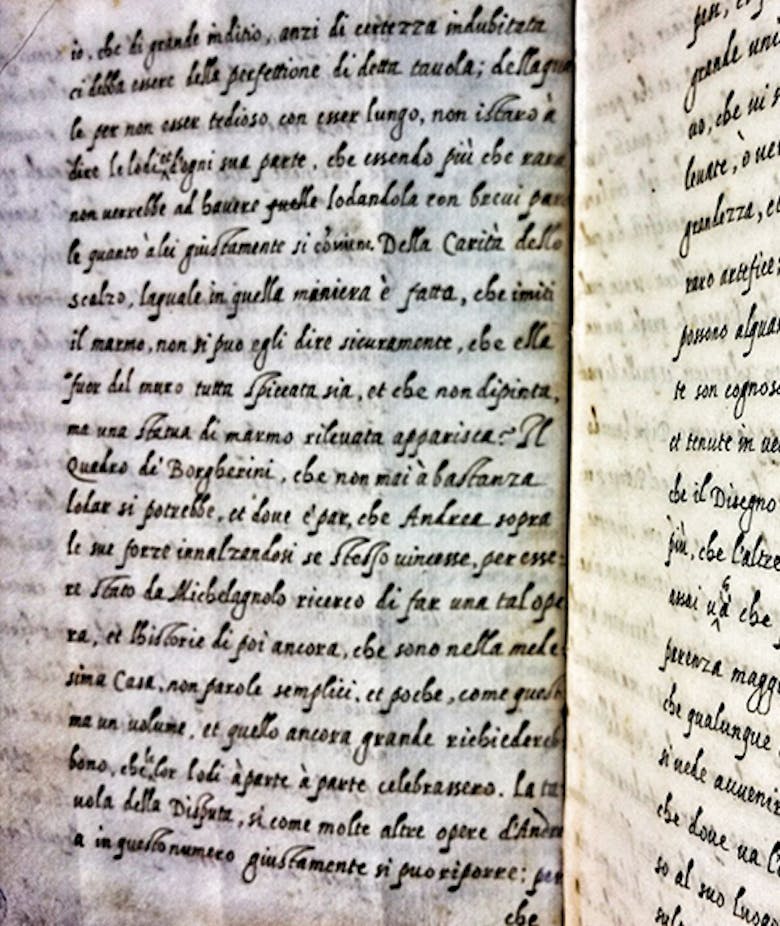 io, che di grande inditio, anzi di certezza indubitata
ci debba essere della perfettione di detta tauola; dellaqua
le per non esser tedioso con esser lungo, non istarò à
dire le lodi et d'ogni sua parte, che essendo più che rara
non uerrebbe ad hauere quelle lodandola con breui paro
le quanto à lei giustamente si cōuiene. Della Carità dello
scalzo, laquale in quella maniera è fatta, che imiti
il marmo, non si puo egli dire sicuramente, che ella
fuor del muro tutta spiccata sia, et che non dipinta,
ma una statua di marmo rileuata apparisca? Il
Quadro di Borgherini, che non mai à bastanza
lodar si potrebbe, et doue è par, che Andrea sopra
le sue forze innalzandosi se stesso uincesse, per esse:
re stato da Michelagnolo ricerco di far una tal ope
ra, et l'historie di poi ancora, che sono nella mede
sima Casa, non parole semplici, et poche, come queste
ma un uolume, et quello ancora grande richiedereb
bono, che le lor lodi à parte à parte celebrassero. La ta
uola della Disputa, si come molte altre opere d'Andre
a in questo numero giustamente si puo riporre: per
che
grande uni
uo, che ui s
leuate, ò uer
grandezza, et
raro artefice;
possono alguan
te son cognosc
et tenute in ue
che il Disegno
più, che l'altre
assai che
perenza maggi
che qualunque
si uede auuenir
che doue ua l'o
so al suo luogo